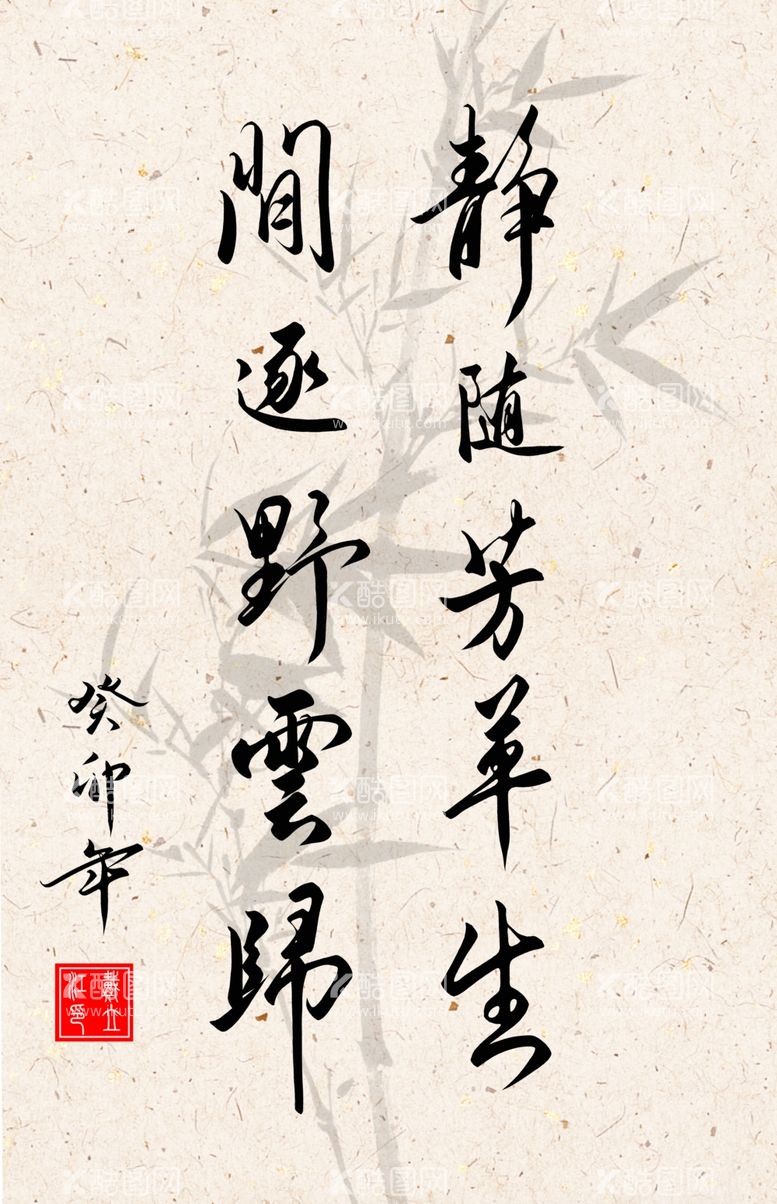 静随芳草生
閒逐野雲歸
癸卯年
戴立江印
酷图网
www.ikutu.com